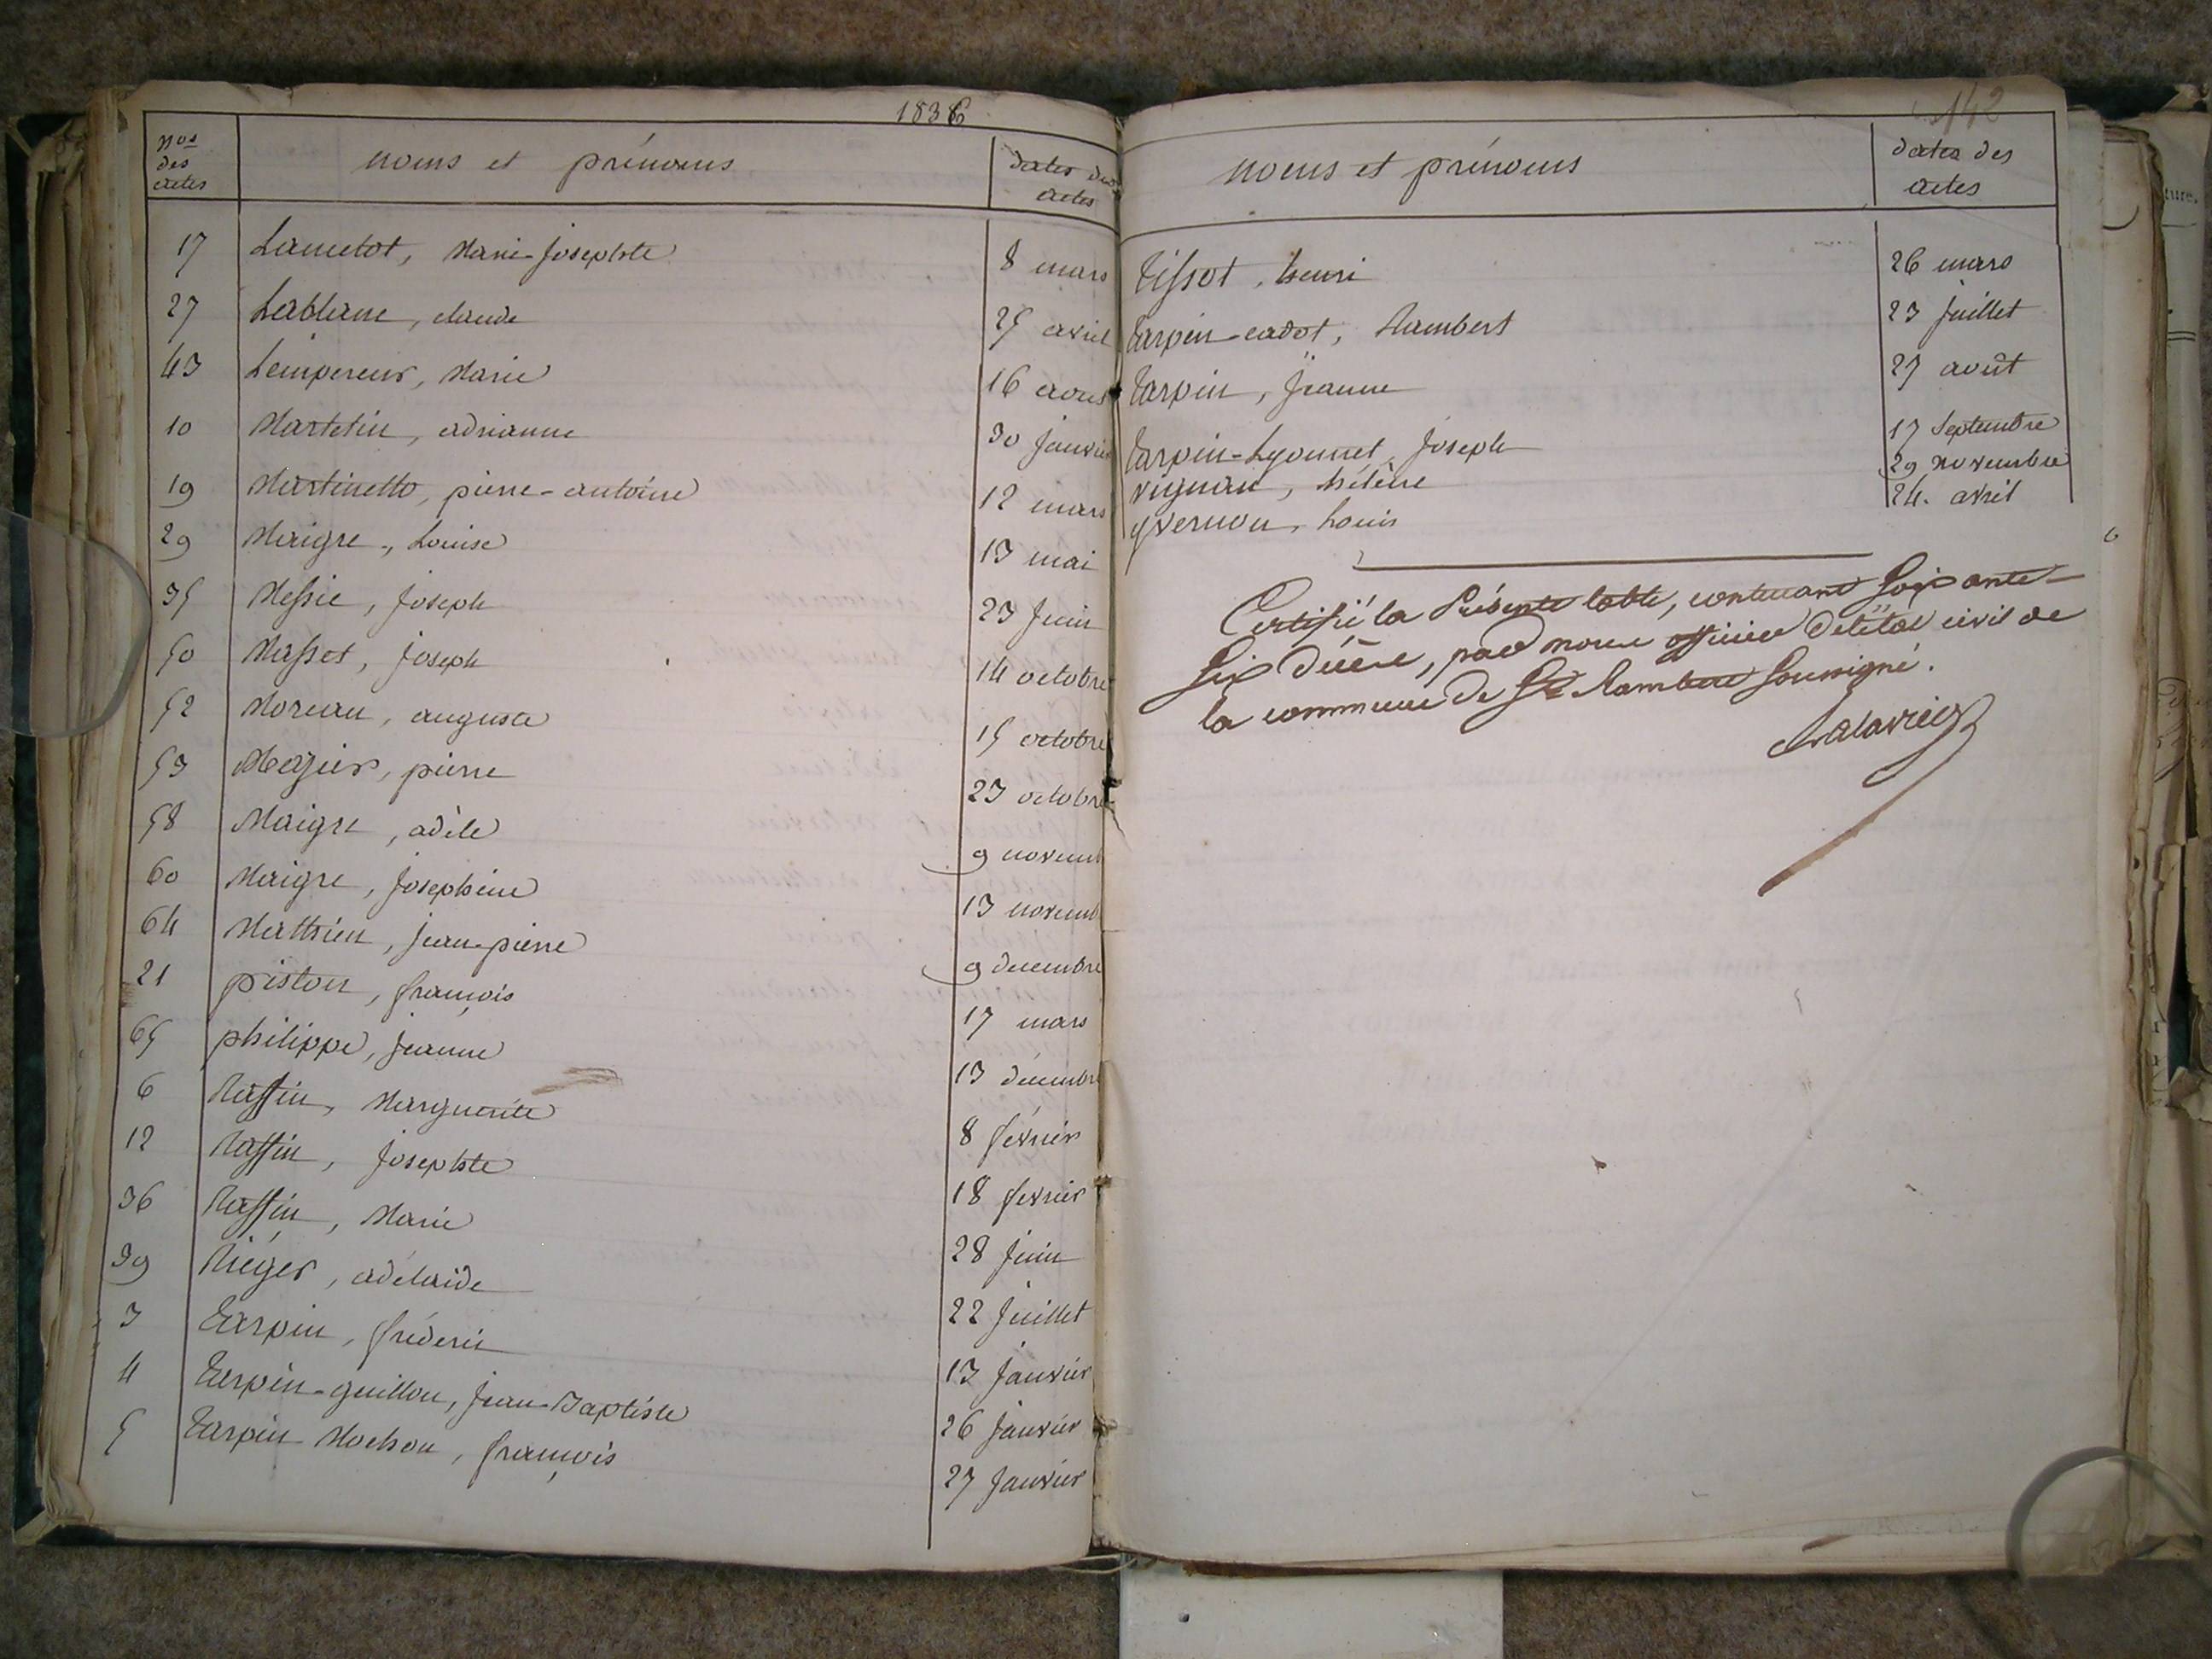 1836
nos des actes noms et prénoms dates des actes
17 Lancelot, Marie-josephte 8 mars
27 Lablanc, claude 25 avril
43 Lempereur, Marie 16 aout
10 Martelin, adrianne 30 janvier
19 Martinetto, pierre-antoine 12 mars
29 Maigre, Louise 13 mai
35 Messie, joseph 23 juin
50 Masset, joseph 14 octobre
52 Moreau, auguste 15 octobre
53 Mezier, pierre 23 octobre
58 Maigre, adèle 9 novemb
60 Maigre, josephine 13 novemb
64 Mathieu, jean-pierre 9 decembre
21 piston, françois 17 mars
65 philippe, jeanne 13 décembre
6 Raffin, Marguerite 8 février
12 Raffin, josephte 18 fevrier
36 Raffin, Marie 28 juin
39 Riéger, adélaïde 22 juillet
3 Tarpin, fréderic 13 janvier
4 Tarpin-guillon, jean-Baptiste 26 janvier
5 Tarpin Mochon, françois 27 janvier
142
noms et prénoms dates des actes
Tissot, henri 26 mars
Tarpin-cadot, Rambert 23 juillet
Tarpin, jeanne 27 août
Tarpin-Lyonnet, joseph 17 Septembre
vignau, hélène 29 novembre
yvernon, Louis 24. avril
Certifié la Présente table, contenant Soixante-
Six décès, par nous officier de l'état civil de
la commune de St Rambert Soussigné.